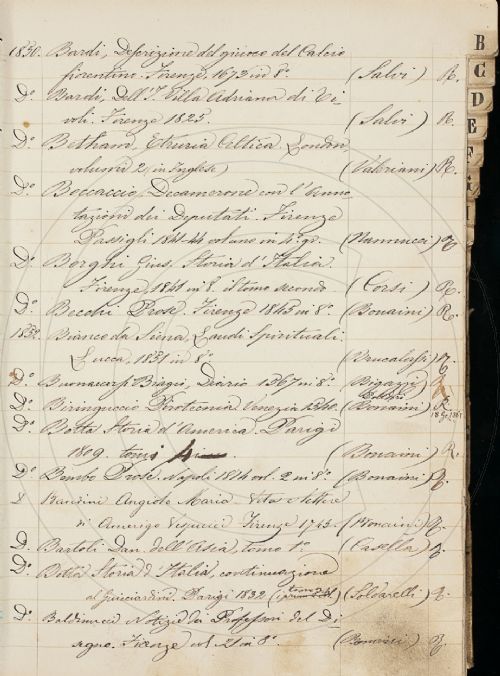 1850. Bardi, Descrizione del giuoco del Calcio
fiorentino. Firenze, 1673 in 8º (Salvi) R.
Dº Bardi, Dell'I. Villa Adriana di Ti
voli. Firenze 1825 (Salvi) R.
Dº Betham, Etruria Celtica, London
volumi 2, in Inglese) (Valeriani) R.
Dº Boccaccio, Decamerone con l'Anno
tazioni dei Deputati. Firenze
Passigli 1841-44 volume in 4º gr. (Nannucci) R
Dº Borghi Gius. Storia d'Italia.
Firenze, 1841 in 8. il tomo secondo (Corsi) R.
Dº Becchi Prose, Firenze 1845 in 8º (Bonaini) R.
1852. Bianco da Siena, Laudi Spirituali.
Lucca, 1851 in 8º R.
Dº Buonaccorsi Biagio, Diario 1567 in 8º (Bigazzi)
Dº Biringuccio Pirotecnia Venezia 1540. (Bonaini) R.
Dº Botta Storia d'America. Parigi
1809. tomi 4 (Bonaini) R.
Dº Bembo Prose, Napoli 1814 vol. 2 in 8º (Bonaini) R.
D Bandini Angiolo Maria Vita e lettere
di Amerigo Vespucci Firenze 1745 (Bonaini) R.
D. Bartoli Dan. dell'Asia, tomo 1º (Casella) R.
D. Botta Storia d'Italia, continuazione
al Guicciardini. Parigi 1832 (Soldarelli) R.
Dº Baldinucci Notizie dei Professori del Di
segno. Firenze vol. 21 in 8º (Bonaini) R.
B
C
D
E
F
G
I